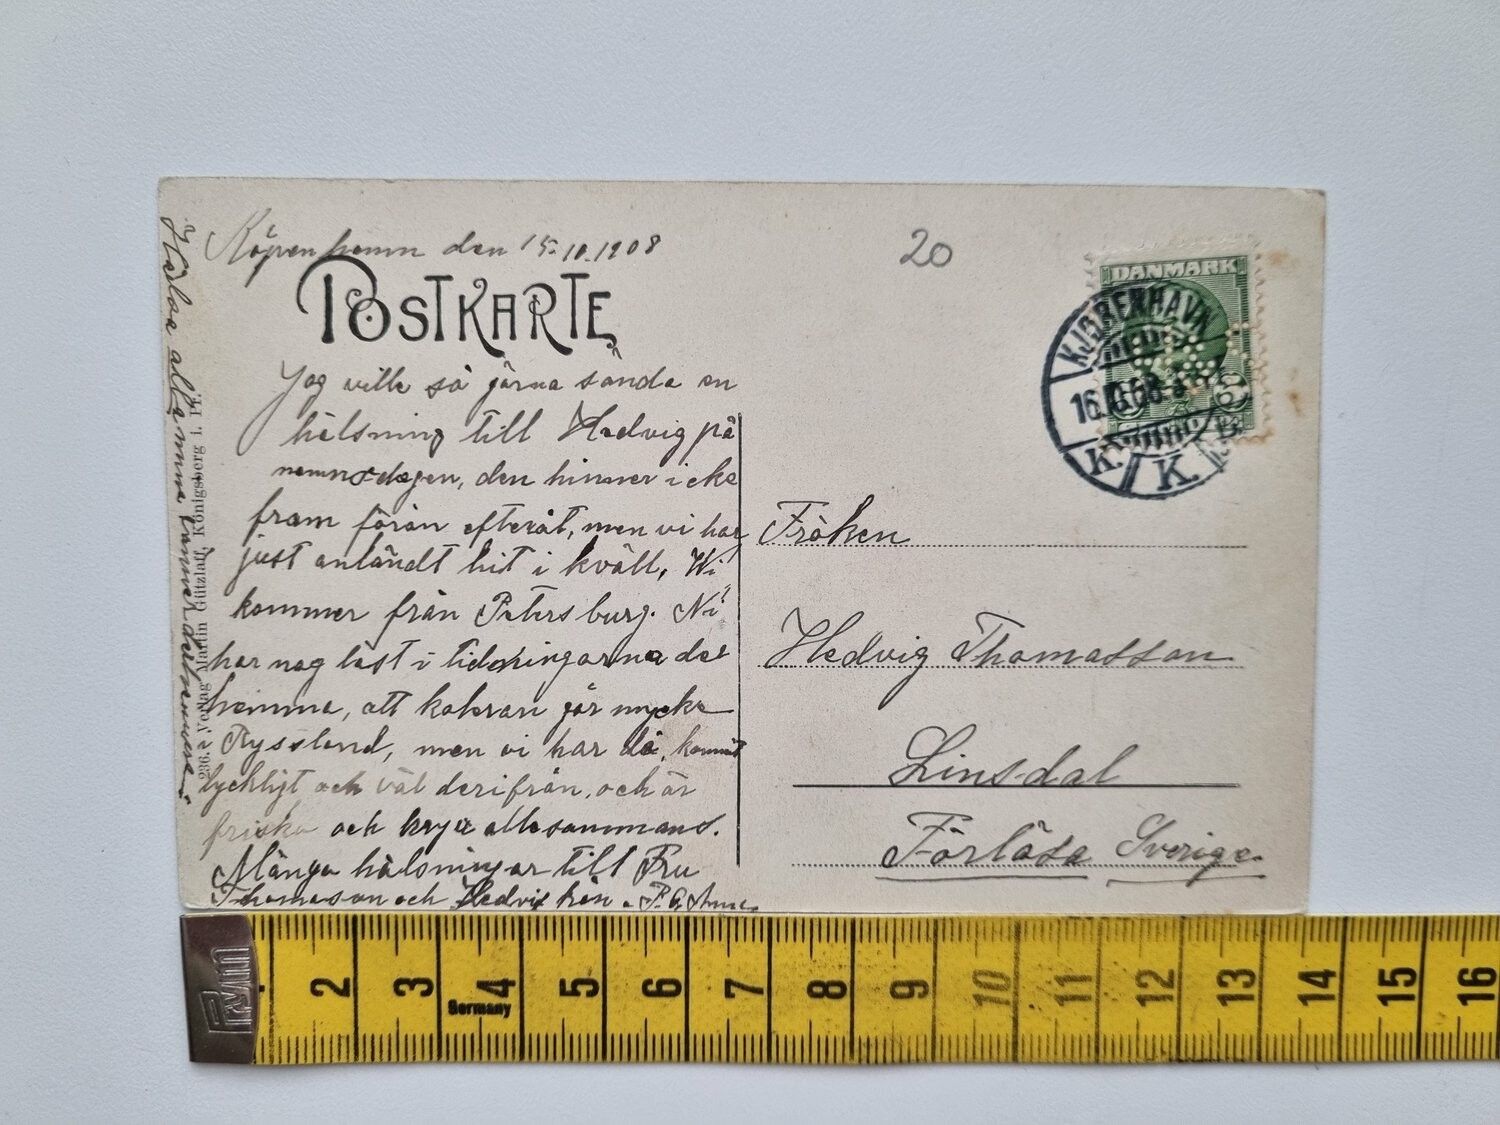 Köpenhamn den 15.10.1908
20
POSTKARTE
DANMARK
KJØBENHAVN
16.10.08
K. K.
Jag ville så gärna sända en
hälsning till Hedvig på
namnsdagen, den hinner icke
fram förän efteråt, men vi har
just anländt hit i kväll, Wi
kommer från Petersburg. Ni
har nog läst i tidningarna der
hemma, att koleran går mycke
i Ryssland, men vi har då kommit
lyckligt och väl derifrån, och är
friska och krya allesammans.
Många hälsningar till Fru
Thomasson och Hedvig från P. G. Anna.
Hälsa alla mina vänner
236. Verlag Martin Gützlaff, Königsberg i. Pr.
Fröken
Hedvig Thomasson
Linsdal
Förlösa Sverige.
Germany
2 3 4 5 6 7 8 9 10 11 12 13 14 15 16